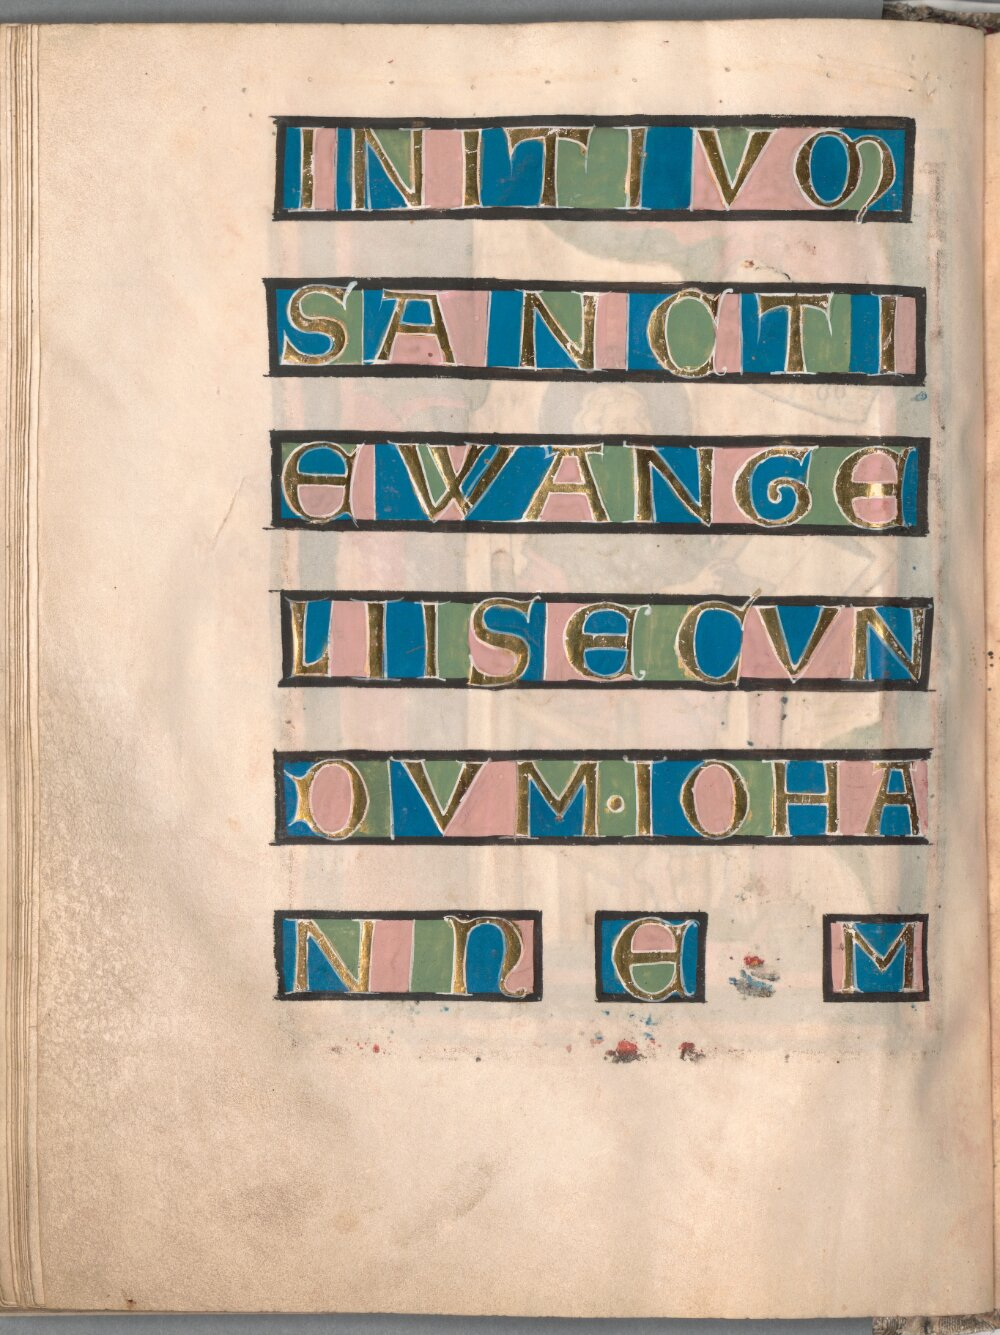 INITIVM
SANCTI
EWANGE
LIISECVN
DVM·IOHA
NNEM